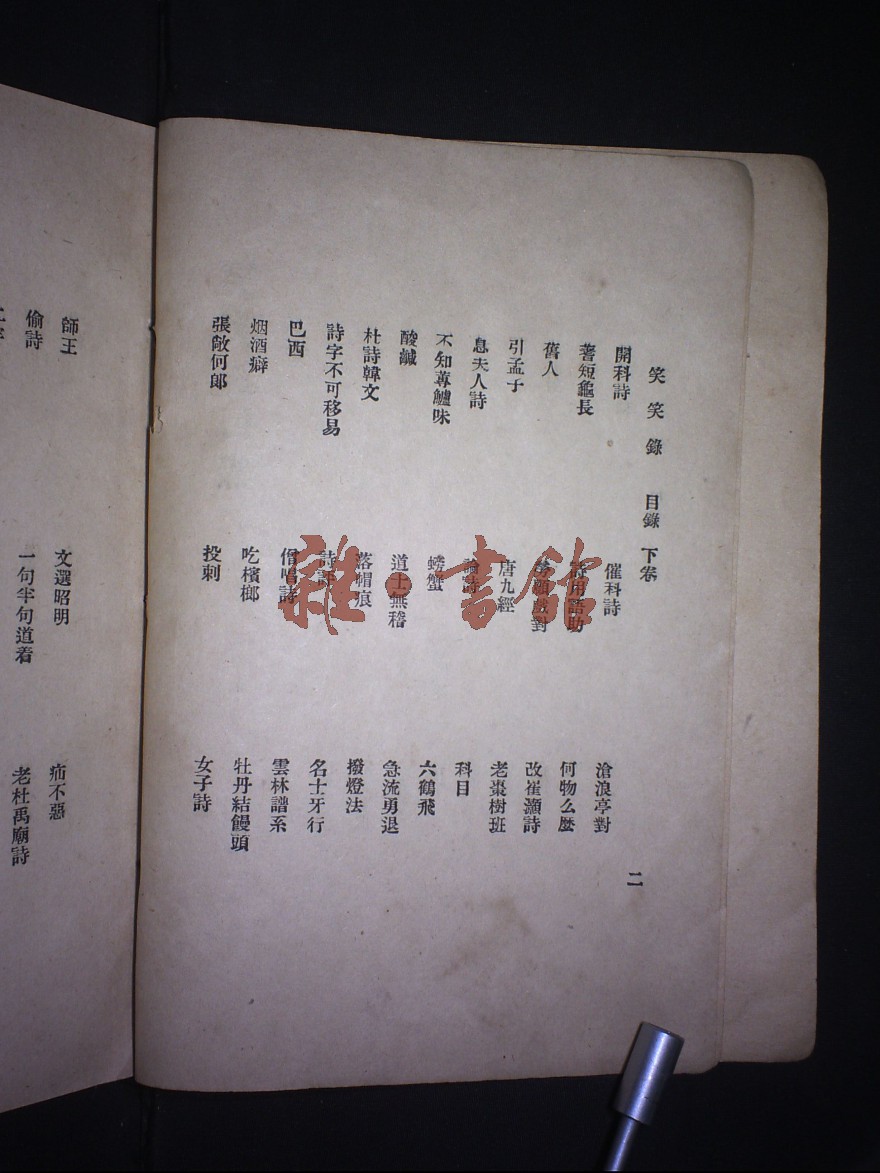 笑笑錄 目錄 下卷 二
開科詩 催科詩 滄浪亭對
蓍短龜長 用語助 何物么麽
舊人 額戲對 改崔灝詩
引孟子 唐九經 老棗樹班
息夫人詩 詩 科目
不知蓴鱸味 螃蟹 六鶴飛
酸鹹 道士無稽 急流勇退
杜詩韓文 落帽痕 撥燈法
詩字不可移易 詩 名士牙行
巴西 僧唱詩 雲林譜系
烟酒癖 吃檳榔 牡丹結饅頭
張敞何郎 投刺 女子詩
師王 文選昭明 疥不惡
偷詩 一句半句道着 老杜禹廟詩
雜·書館